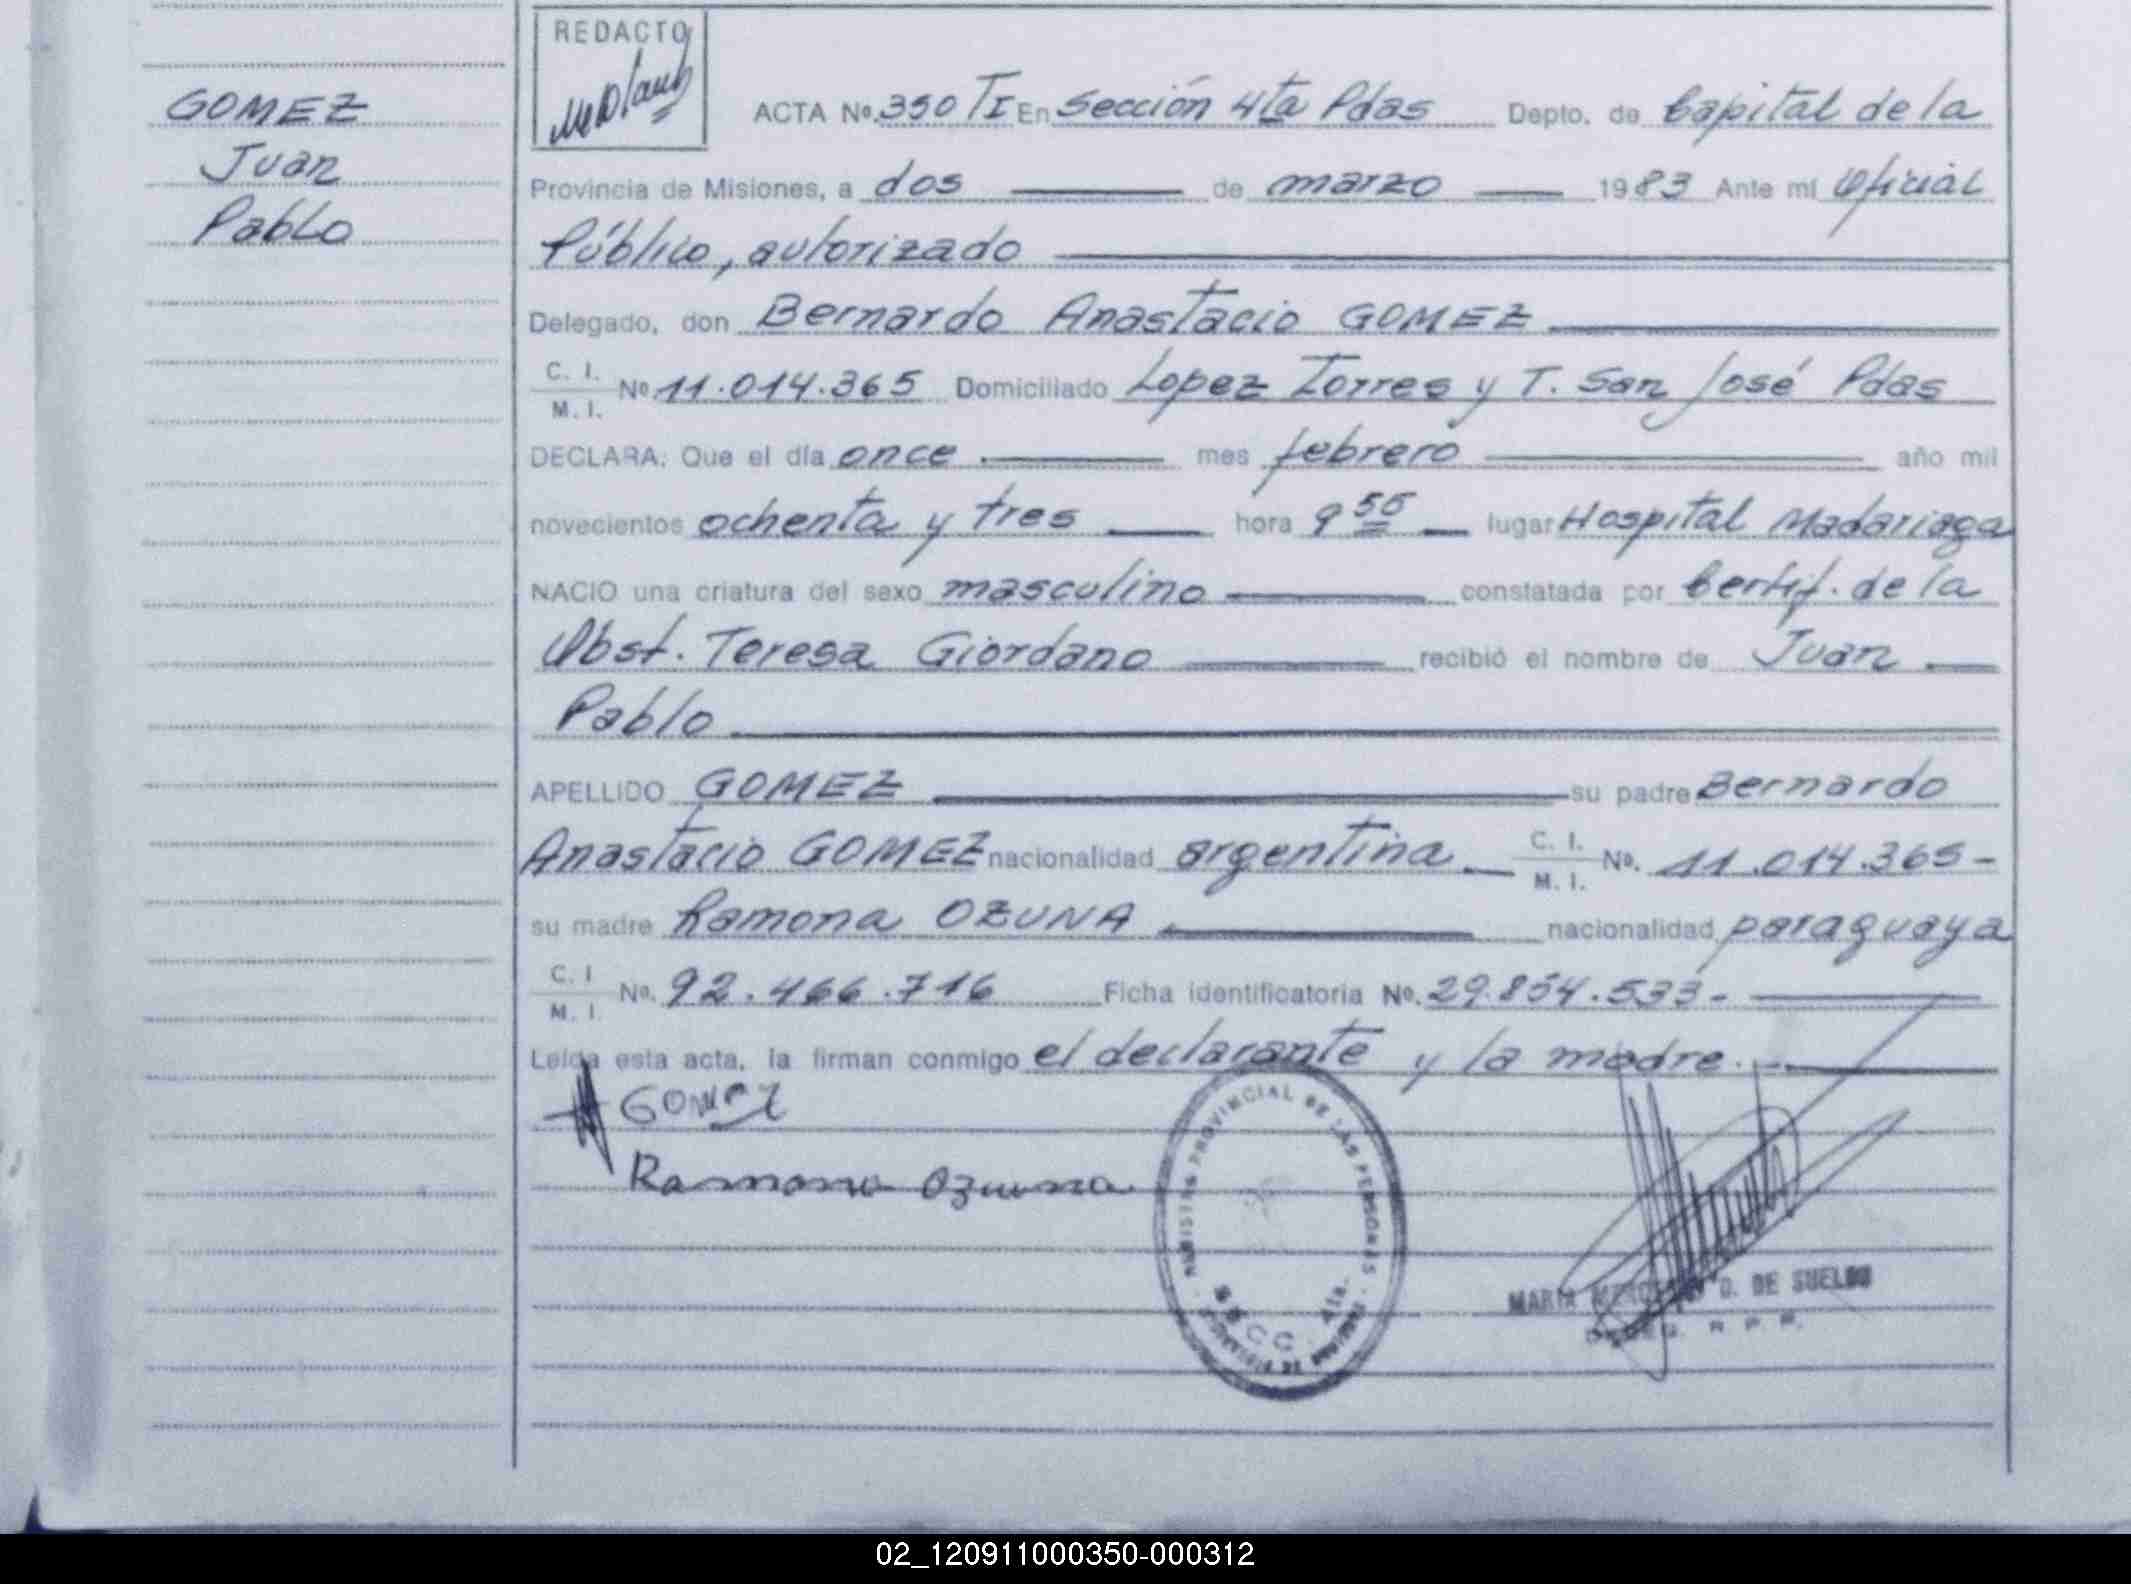 REDACTO
GOMEZ
Juan
Pablo
ACTA Nº. 350 TI En Sección 4ta Pdas Depto. de Capital de la
Provincia de Misiones, a dos de marzo 1983 Ante mí Oficial
Público, autorizado
Delegado, don Bernardo Anastacio GOMEZ
C. I.
M. I. Nº 11.014.365 Domiciliado Lopez Torres y T. San José Pdas
DECLARA: Que el día once mes febrero año mil
novecientos ochenta y tres hora 9 55 lugar Hospital Madariaga
NACIO una criatura del sexo masculino constatada por Certif. de la
Obst. Teresa Giordano recibió el nombre de Juan
Pablo
APELLIDO GOMEZ su padre Bernardo
Anastacio GOMEZ nacionalidad argentina C. I. M. I. Nº. 11.014.365-
su madre Ramona OZUNA nacionalidad paraguaya
C. I
M. I. Nº. 92.466.716 Ficha identificatoria Nº. 29.854.533-
Leída esta acta, la firman conmigo el declarante y la madre.-
GOMEZ
Ramona Ozuna
REGISTRO PROVINCIAL DE LAS PERSONAS
SECC. 4ta.
MARIA D. DE SUELDO
R. P. P.
02_120911000350-000312